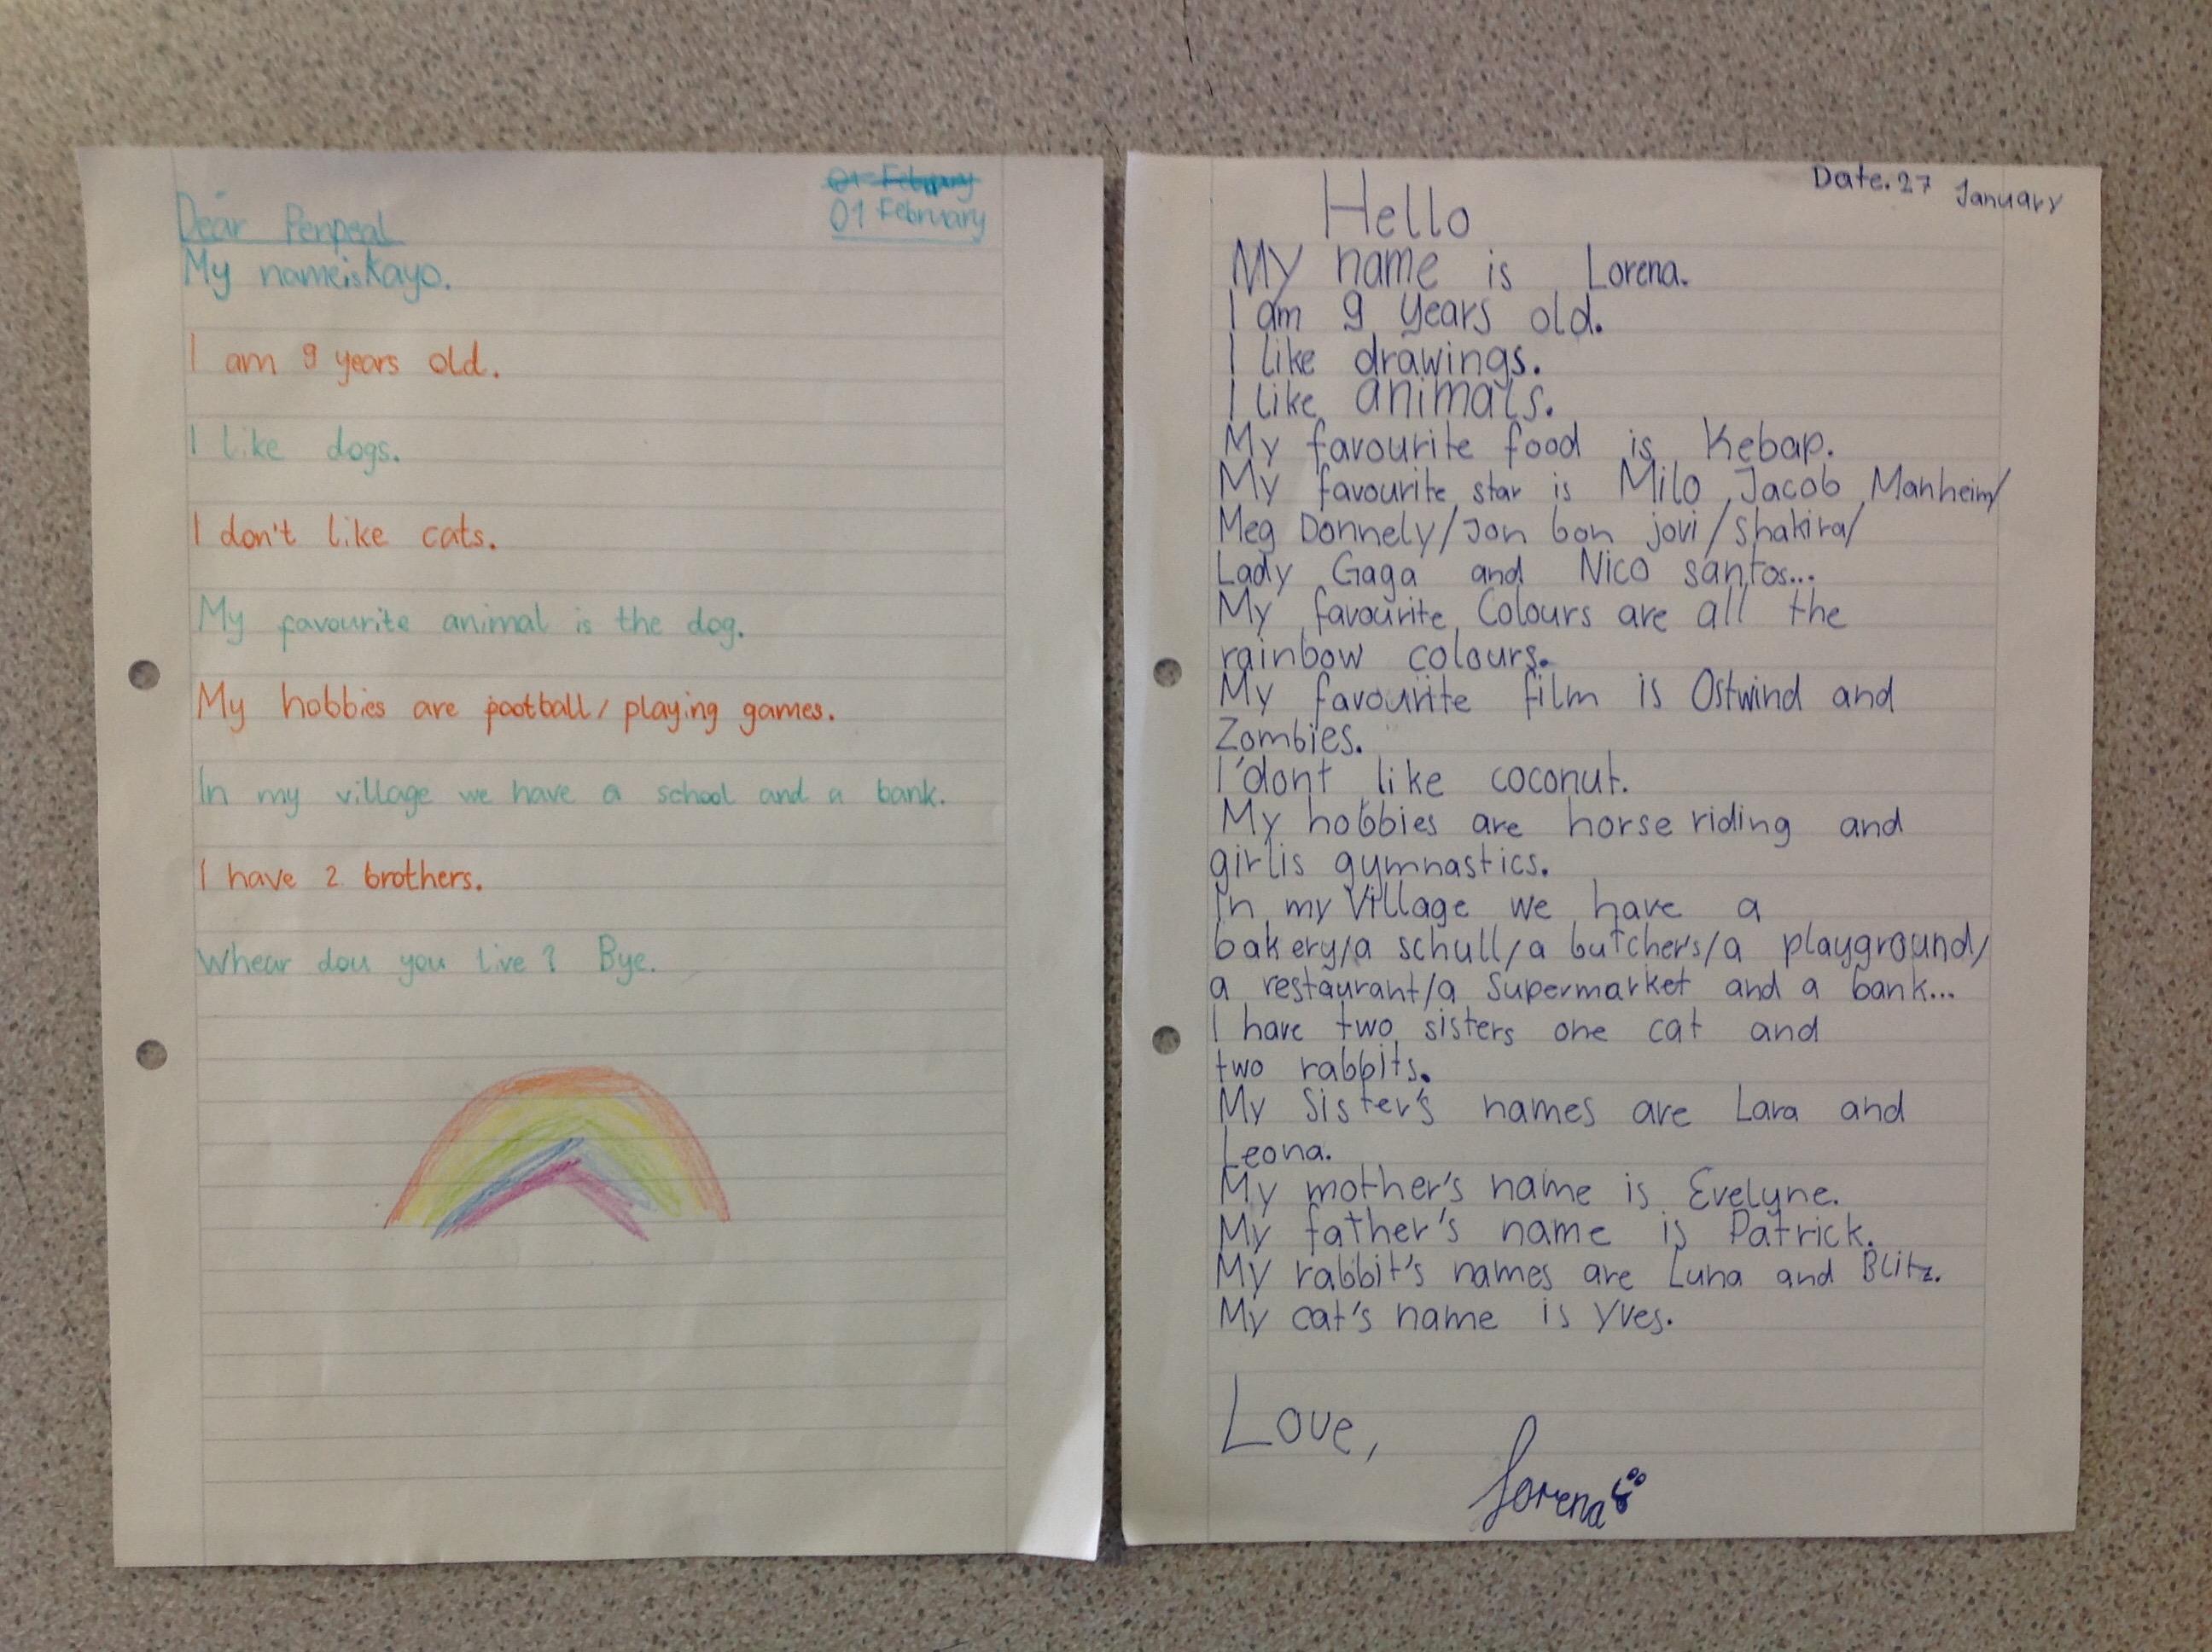 01 February
01 February
Dear Penpeal
My name is Kayo.
I am 9 years old.
I like dogs.
I don't like cats.
My favourite animal is the dog.
My hobbies are football/ playing games.
In my village we have a school and a bank.
I have 2 brothers.
Whear dou you live? Bye.
Date. 27 January
Hello
My name is Lorena.
I am 9 years old.
I like drawings.
I like animals.
My favourite food is Kebap.
My favourite star is Milo Jacob Manheim/
Meg Donnely/Jon bon jovi/Shakira/
Lady Gaga and Nico santos...
My favourite Colours are all the
rainbow colours.
My favourite film is Ostwind and
Zombies.
I'dont like coconut.
My hobbies are horse riding and
girlis gymnastics.
In my Village we have a
bakery/a schull/a butcher's/a playground/
a restaurant/a Supermarket and a bank...
I have two sisters one cat and
two rabbits.
My Sister's names are Lara and
Leona.
My mother's name is Evelyne.
My father's name is Patrick.
My rabbit's names are Luna and Blitz.
My cat's name is Yves.
Love,
Lorena